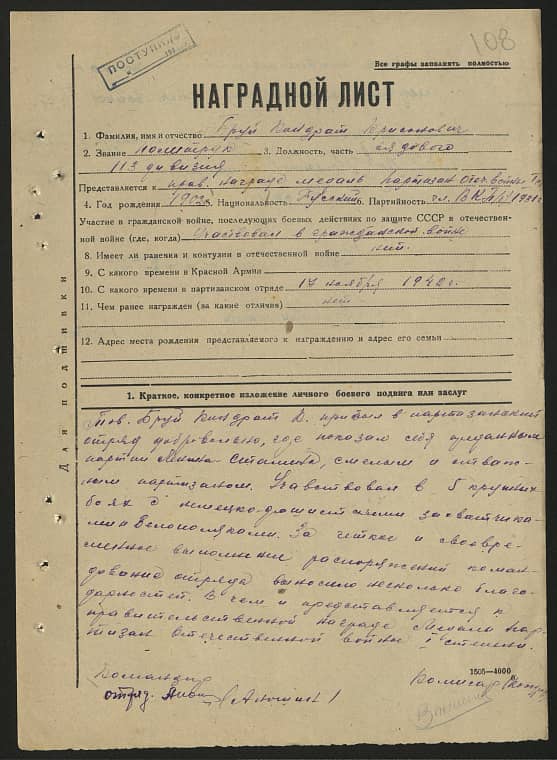 ПОСТУПИЛО
108
Все графы заполнять полностью
НАГРАДНОЙ ЛИСТ
1. Фамилия, имя и отчество Бруй Кондрат
2. Звание политрук 3. Должность, часть рядового
113 дивизия
Представляется к прав. награде медаль Партизан Отеч. войны
4. Год рождения 1902г. Национальность Русский 6. Партийность чл. ВКП(б) 1931 г
Участие в гражданской войне, последующих боевых действиях по защите СССР в отечествен-
ной войне (где, когда) Участвовал в гражданской войне
8. Имеет ли ранения и контузии в отечественной войне нет.
9. С какого времени в Красной Армии
10. С какого времени в партизанском отряде 17 ноября 1942 г.
11. Чем ранее награжден (за какие отличия) нет
12. Адрес места рождения представляемого к награждению и адрес его семьи
Для подшивки
1. Краткое, конкретное изложение личного боевого подвига или заслуг
Тов. Бруй Кондрат К. прибыл в партизанский
отряд добровольно, где показал себя преданным
партии Ленина Сталина, смелым и отваж-
ным партизаном. Участвовал в 5 крупных
боях с немецко-фашистскими захватчика-
ми и Белополяками. За четкое и своевре-
менное выполнение распоряжений коман-
дование отряда выносило несколько благо-
дарностей. В чем и представляется к
правительственной награде Медаль Пар-
тизан Отечественной войны I степени.
1505—4000
Командир Комисар
отряд.